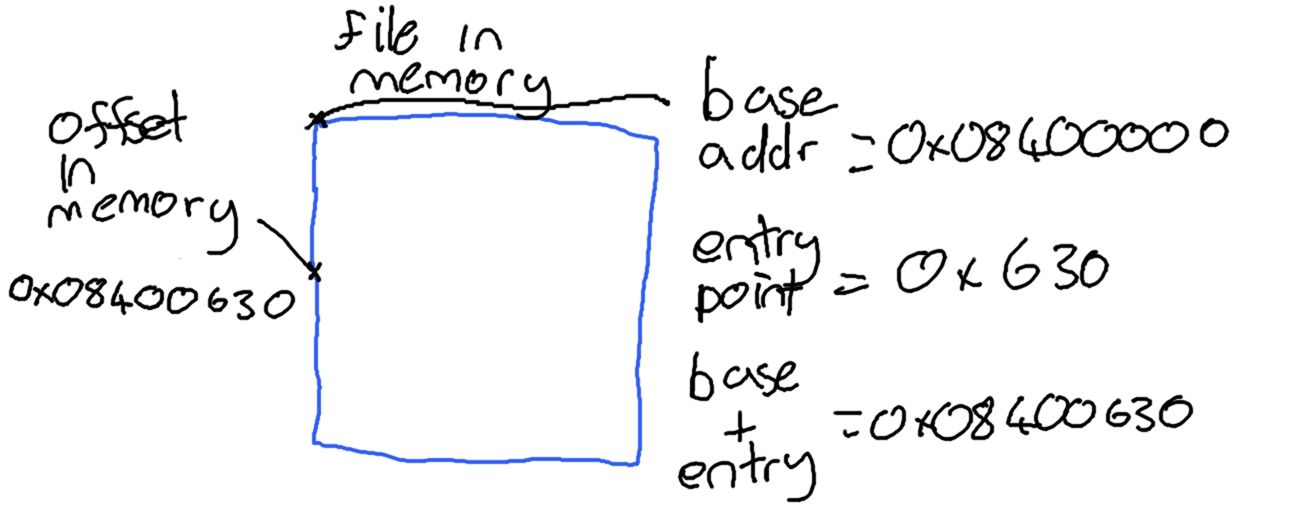 file in
memory
offset
in
memory
0x08400630
base
addr = 0x08400000
entry
point = 0x630
base
+ = 0x08400630
entry